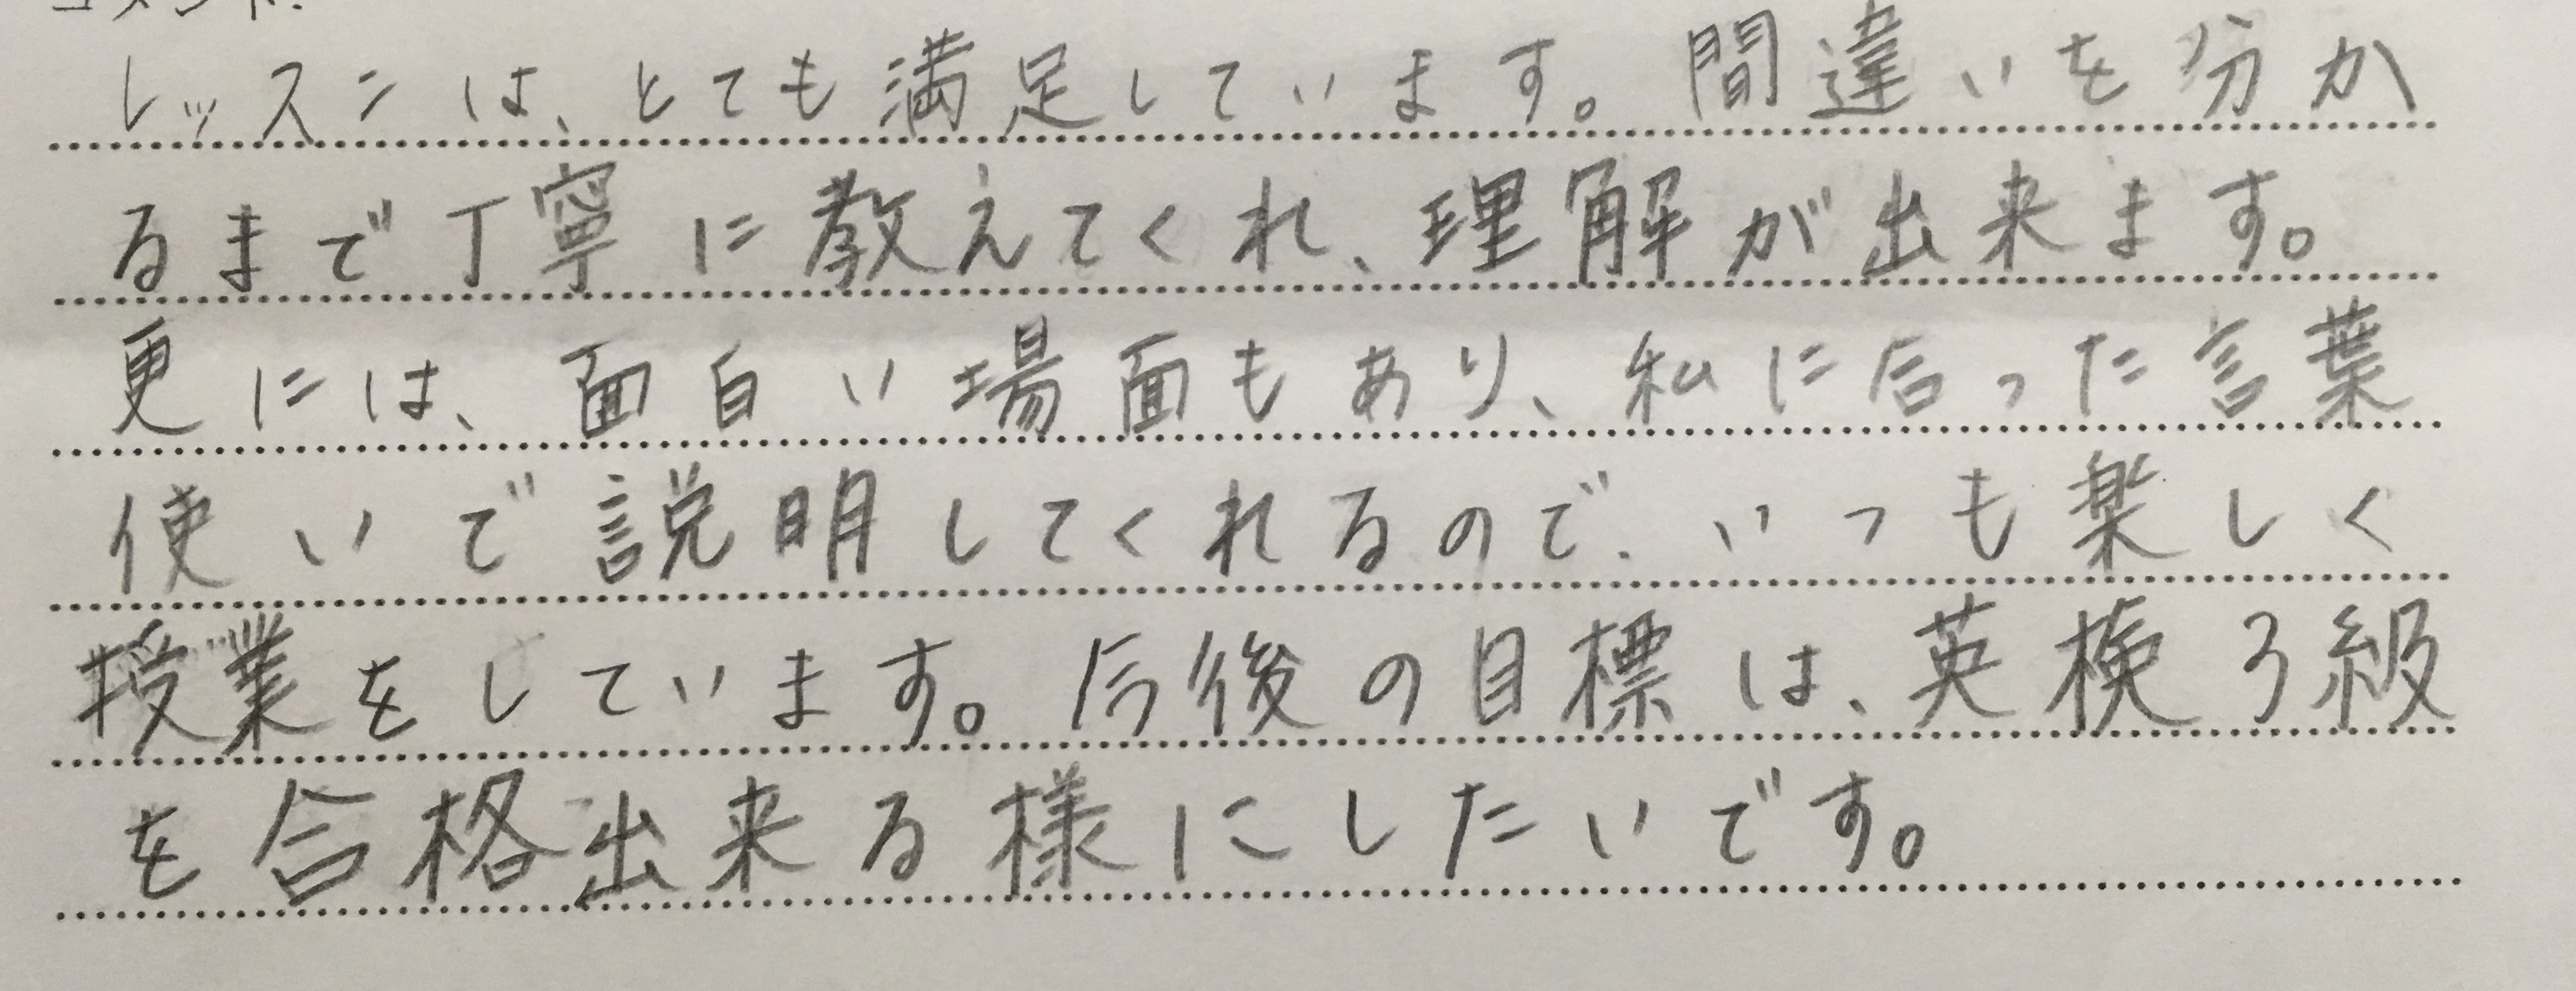 コメント:
レッスンは、とても満足しています。間違いを分か
るまで丁寧に教えてくれ、理解が出来ます。
更には、面白い場面もあり、私に合った言葉
使いで説明してくれるので、いつも楽しく
授業をしています。今後の目標は、英検3級
を合格出来る様にしたいです。